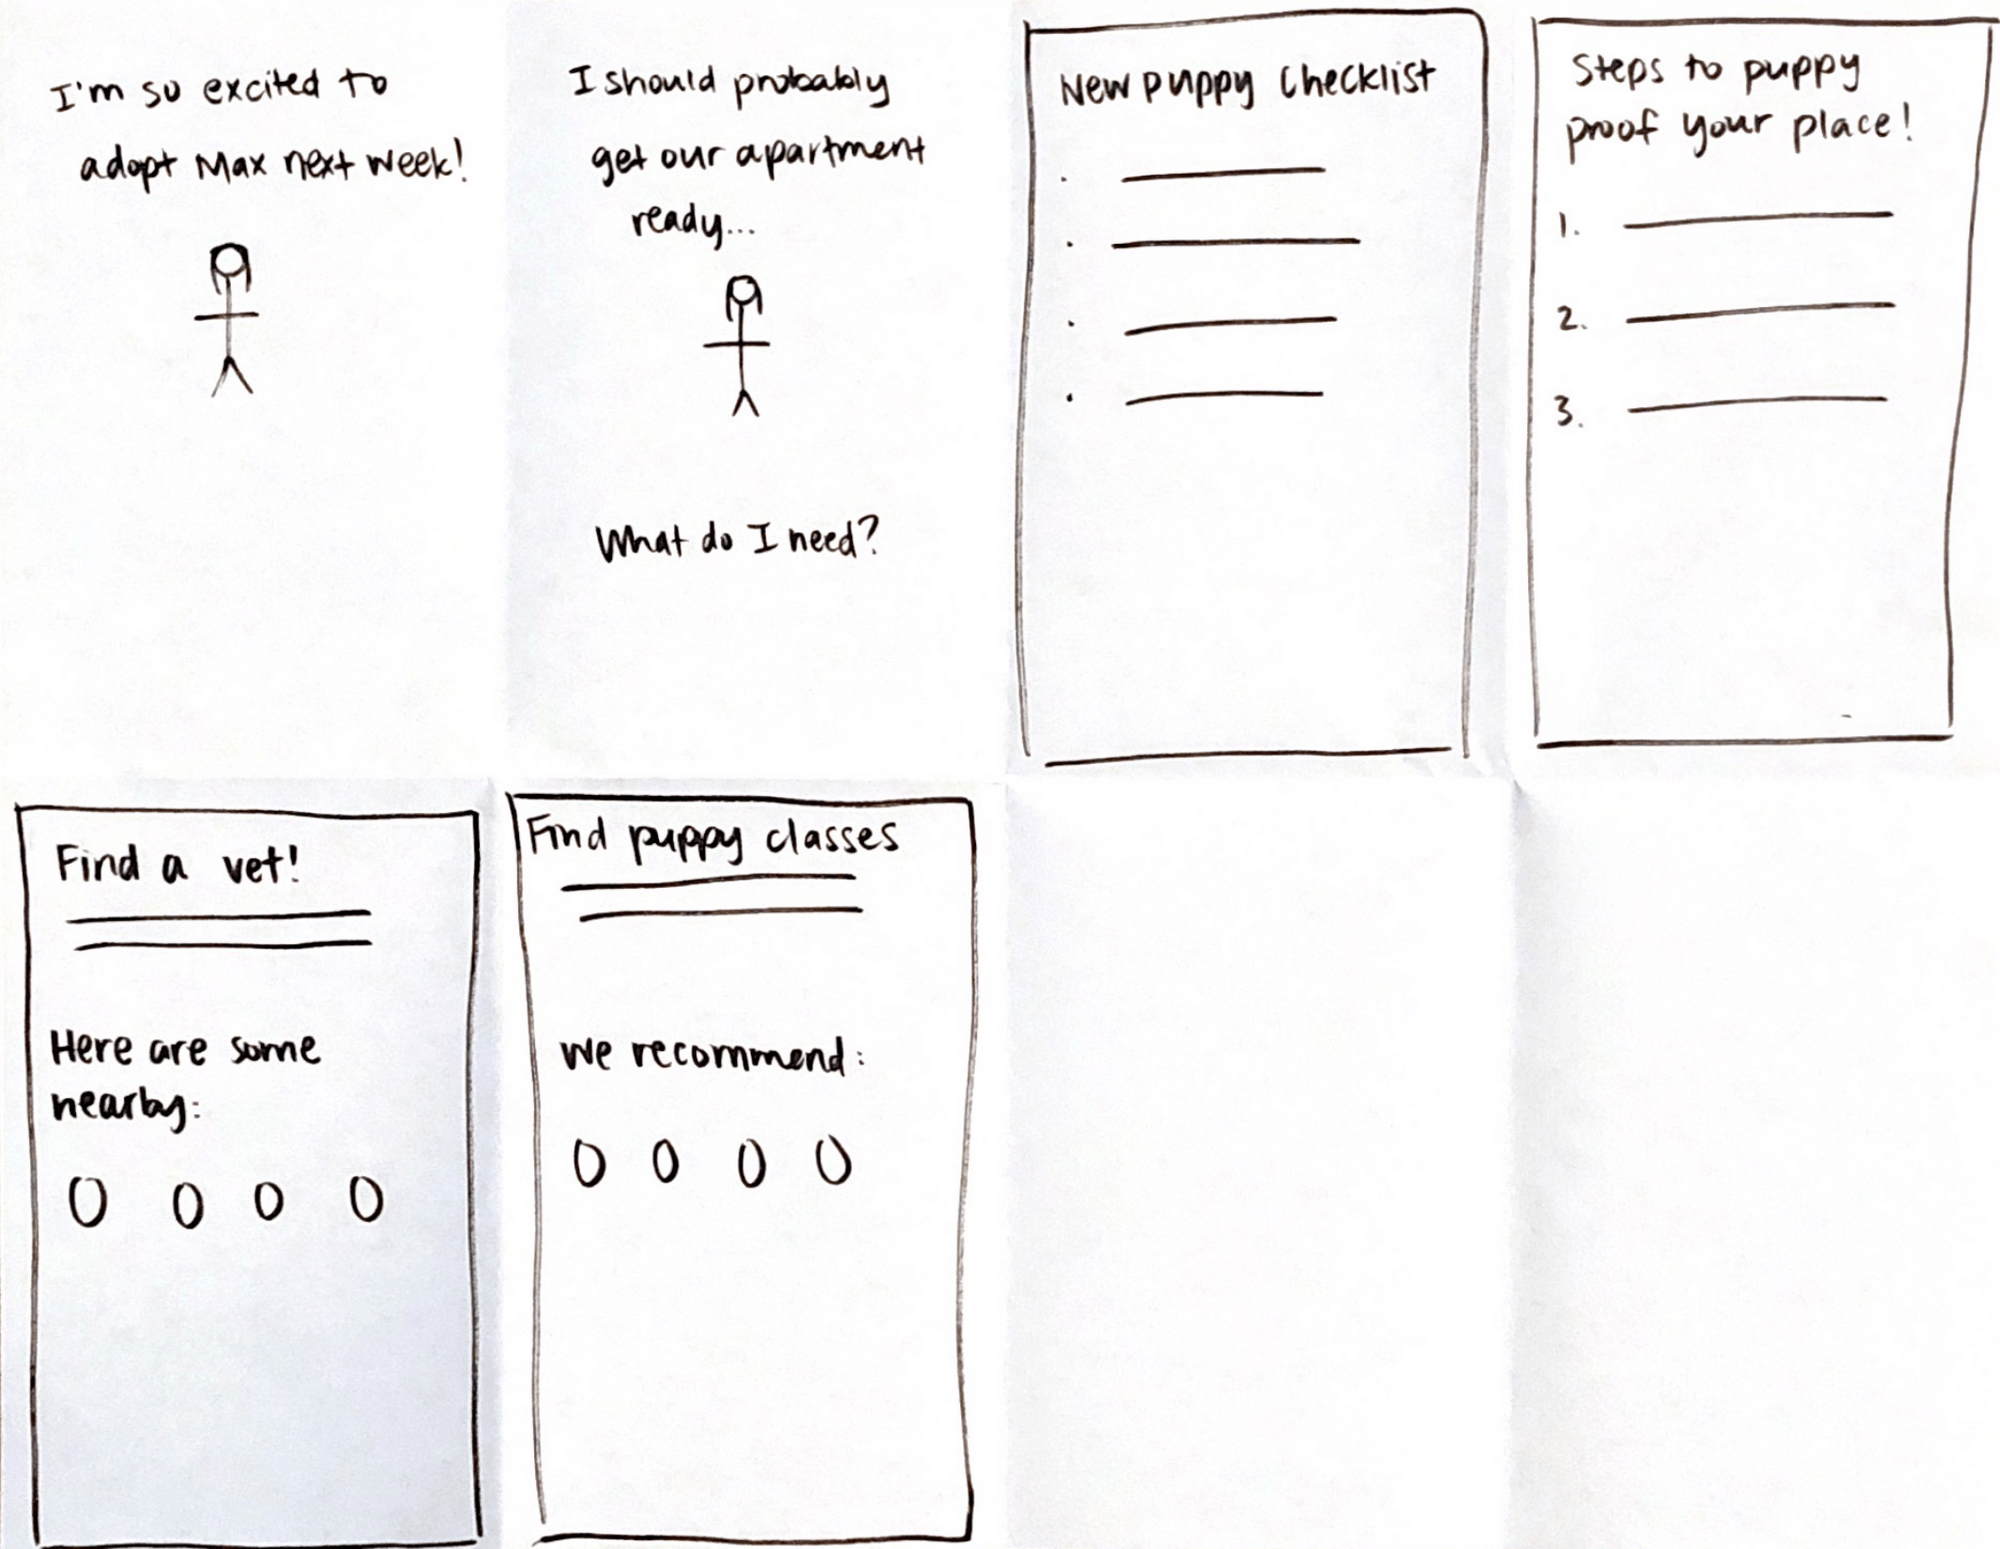 I'm so excited to
adopt Max next week!
I should probably
get our apartment
ready...
What do I need?
New puppy checklist
Steps to puppy
proof your place!
1.
2.
3.
Find a vet!
Here are some
nearby:
Find puppy classes
We recommend: